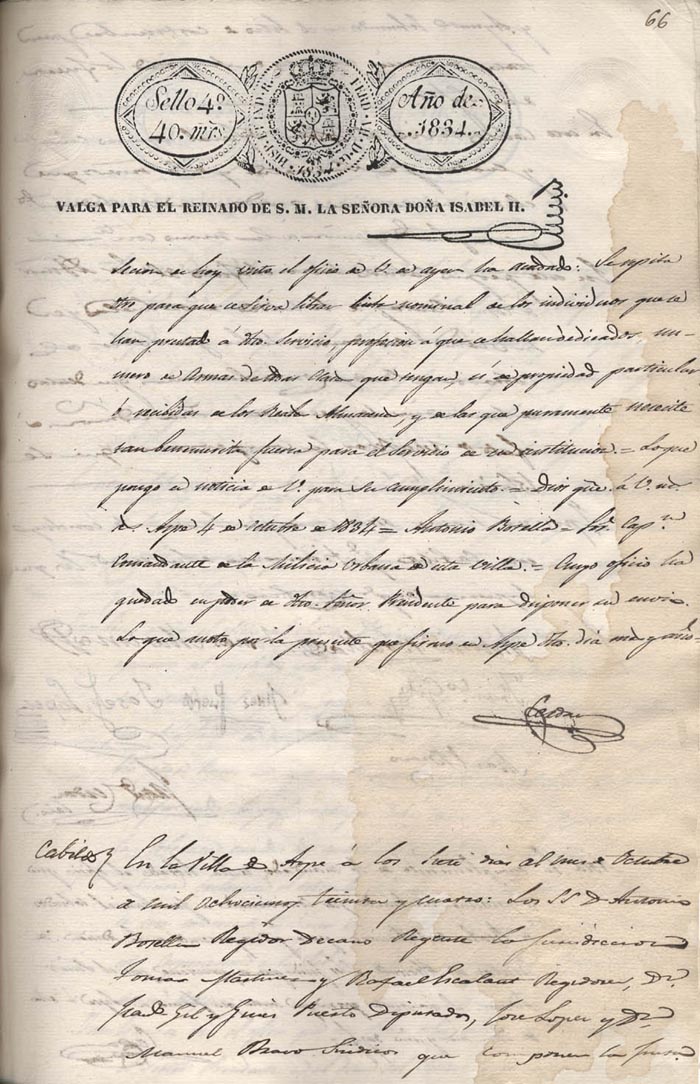 66
Sello 4º
40. mrs
HISP. ET IND. R.
FERD. VII. D. G.
1834
Año de
1834.
VALGA PARA EL REINADO DE S. M. LA SEÑORA DOÑA ISABEL II.
Secion de hoy visto el oficio de V. de ayer ha acordado: Se repita
otro para que se sirva librar lista nominal de los individuos que se
han prestado á dho. Servicio, profesion á que se hallan dedicados, nu-
mero de Armas de toda clase que tengan, si de propiedad particular
ó recibidas de los Reales Almacenes, y de las que puramente necesite
tan benemerita fuerza para el Servicio de su institucion. = Lo que
pongo en noticia de V. para su cumplimiento. = Dios gue. á V. ms.
as. Aspe 4 de Octubre de 1834 = Antonio Botella = Sor. Capn.
Comandante de la Milicia Urbana de esta Villa. = Cuyo oficio ha
quedado en poder de dho. Señor Presidente para disponer su envio.
Lo que noto por la presente que firmo en Aspe dho. dia mes y año =
Cabildo En la Villa de Aspe á los Siete dias del mes de Octubre
de mil ochocientos treinta y cuatro: Los SS. D. Antonio
Botella Regidor Decano Regente la Jurisdiccion
Tomas Martinez y Rafael Escalant Regidores, Dn.
Gil y Gines Puerto Diputados, Jose Lopez y Dn.
Manuel Bravo Sindicos que componen la